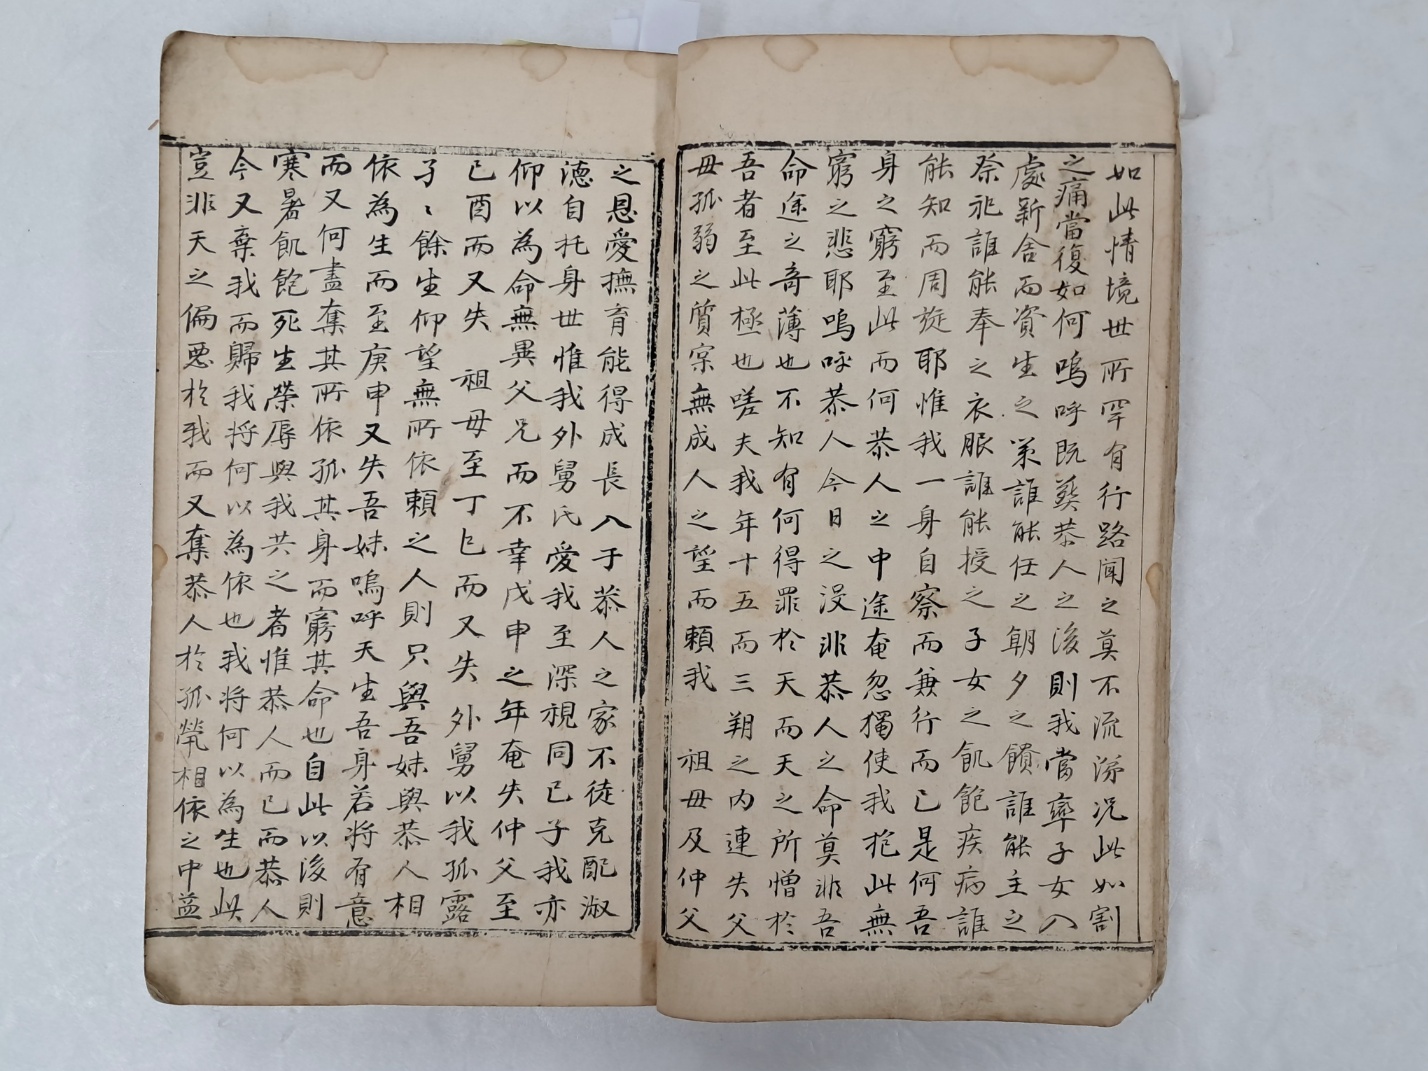 如此情境世所罕有行路聞之莫不流涕况此如割
之痛當復如何嗚呼既葬恭人之後則我當率子女入
處新舍而資生之策誰能任之朝夕之饋誰能主之
祭祀誰能奉之衣服誰能授之子女之飢飽疾病誰
能知而周旋耶惟我一身自察而兼行而已是何吾
身之窮至此而何恭人之中途奄忽獨使我抱此無
窮之悲耶嗚呼恭人今日之沒非恭人之命莫非吾
命途之奇薄也不知有何得罪於天而天之所憎於
吾者至此極也嗟夫我年十五而三朔之内連失父
母孤弱之質寔無成人之望而賴我 祖母及仲父
之恩愛撫育能得成長入于恭人之家不徒克配淑
德自托身世惟我外舅氏愛我至深視同已子我亦
仰以為命無異父兄而不幸戊申之年奄失仲父至
已酉而又失 祖母至丁巳而又失 外舅以我孤露
孑〻餘生仰望無所依賴之人則只與吾妹與恭人相
依為生而至庚申又失吾妹嗚呼天生吾身若將有意
而又何盡奪其所依孤其身而窮其命也自此以後則
寒暑飢飽死生榮辱與我共之者惟恭人而已而恭人
今又棄我而歸我將何以為依也我將何以為生也此
豈非天之偏惡於我而又奪恭人於孤煢相依之中益